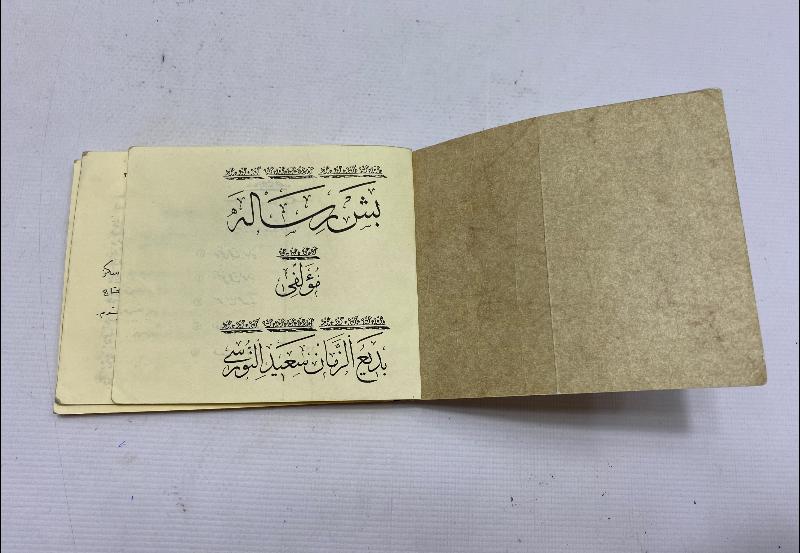 بش رساله
مؤلفى
بديع الزمان سعيد النورسى